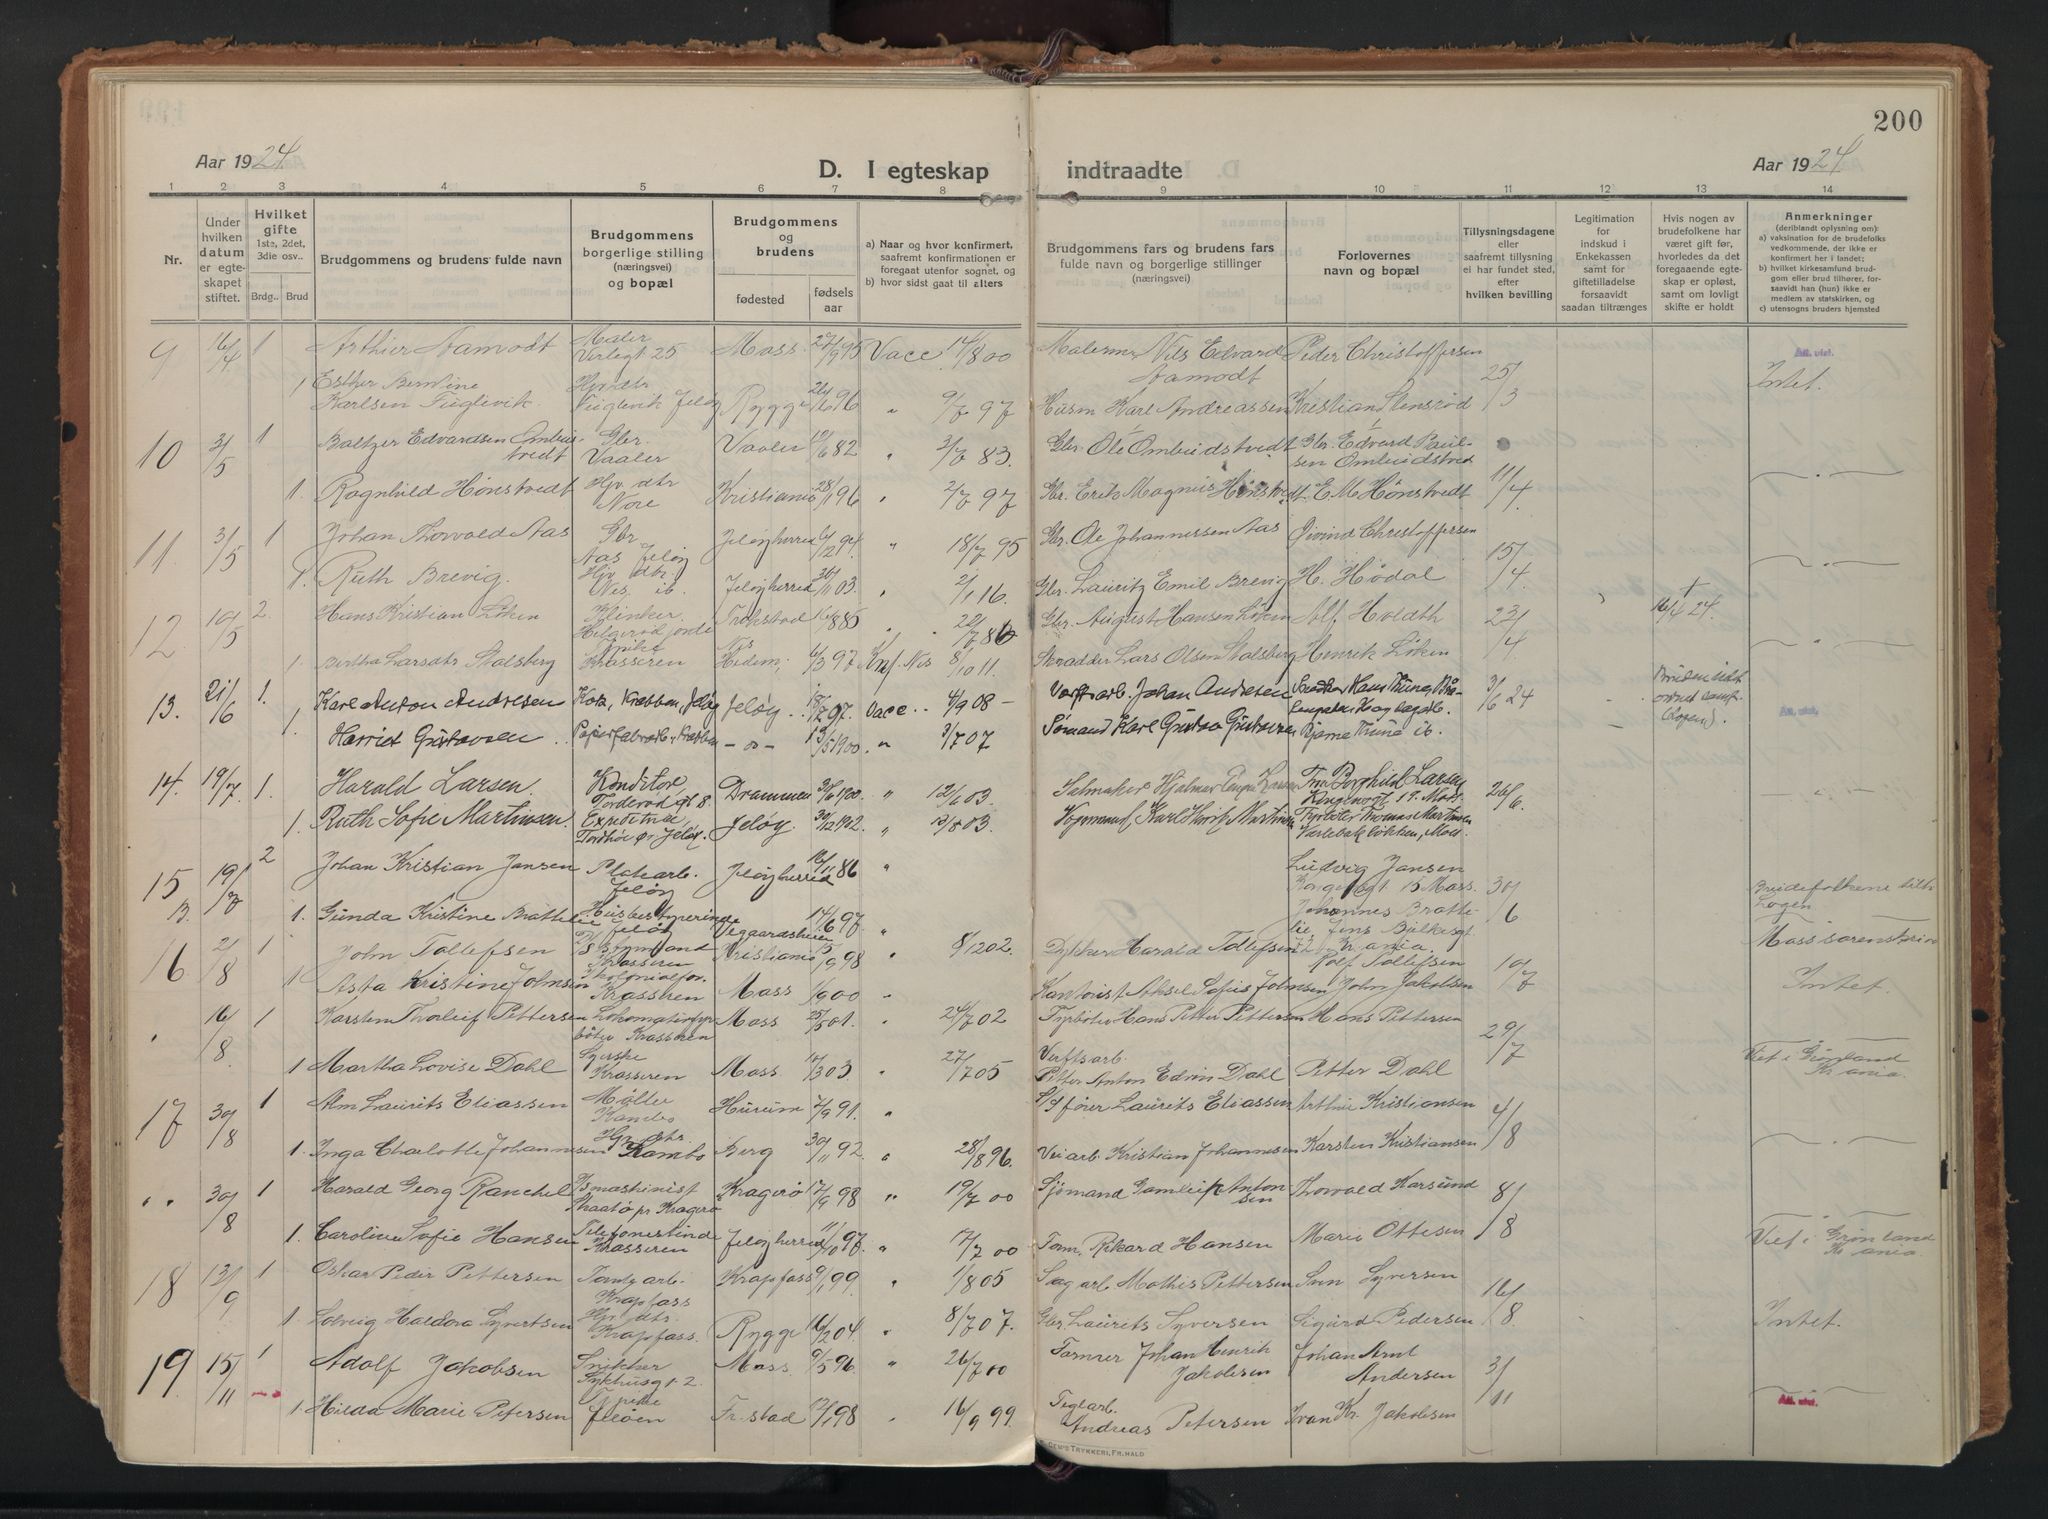 200
Aar 1924.
D. I egteskap indtraadte
Aar 1924
1 2 3 4 5 6 7 8 9 10 11 12 13 14
Nr.
Under hvilken datum er egteskapet stiftet.
Hvilket gifte 1ste, 2det, 3die osv..
Brdg.. Brud
Brudgommens og brudens fulde navn
Brudgommens borgerlige stilling (næringsvei) og bopæl
Brudgommens og brudens
fødested
fødsels aar
a) Naar og hvor konfirmert, saafremt konfirmationen er foregaat utenfor sognet, og
b) hvor sidst gaat til alters
Brudgommens fars og brudens fars fulde navn og borgerlige stillinger (næringsvei)
Forlovernes navn og bopæl
Tillysningsdagene eller saafremt tillysning ei har fundet sted, efter hvilken bevilling
Legitimation for indskud i Enkekassen samt for giftetilladelse forsaavidt saadan tiltrænges
Hvis nogen av brudefolkene har været gift før, hvorledes da det foregaaende egteskap er opløst, samt om lovlig skifte er holdt
Anmerkninger (deriblandt oplysning om):
a) vaksination for de brudefolks vedkommende, der ikke er konfirmert her i landet;
b) hvilket kirkesamfund brudgom eller brud tilhører, forsaavidt han (hun) ikke er medlem av statskirken, og
c) utensogns bruders hjemsted
9 16/4 1 Arthur Aamodt Maler Verlegt 25 Moss 27/9 95 Vacc. 14/8 00 Malerms Nils Edvard Aamodt Peder Christoffersen Att. vist.
1 Esther Berntine Karlsen Fuglevik Hjv. dtr Fuglevik Jeløy Rygge 96 " 9/7 97 Husm Karl Andreassen Kristian Stensrød 25/3 Intet.
10 3/5 1 Baltzer Edvardsen Ombudstvedt Gbr. Vaaler Vaaler 82 3/7 83. Gbr. Ole Ombudstvedt Gbr. Edvard Paulsen Ombudstvedt
1. Ragnhild Hønstvedt Hjv. dtr Nore Kristiania 28/1 96 " 2/7 97 Gbr. Erik Magnus Hønstvedt E. M. Hønstvedt 11/4.
11 3/5 1 Johan Thorvald Aas Gbr Aas Jeløy Jeløy herred 94 " 18/7 95 Gbr. Ole Johannessen Aas Øivind Christoffersen
1. Ruth Brevig. Hjv. dtr. Nes. ib. Jeløy herred 03. " 2/1 16. Gbr. Lauritz Emil Brevig H. Hødal 15/4.
12 10/5 2. Hans Kristian Løken Klinker Helgerødjorde Trøkstad 85 22/7 86 Gbr. August Hansen Løken Alf Holdth 23/4 24.
1. Bertha Larsdtr Stolsberg Krasseren Nes Hedem; 6/3 97 Knf. Nes 8/10 11. Skrædder Lars Olsen Stolsberg Henrik Løken
13. 21/6 1. Karl Anton Andresen Jeløy 97. Vacc. 4/9 08 - Verftsarb. Johan Andresen 3/6 24
1 Harrid Gustavsen Papirfabrarb., Krabben - " - 13/5 1900 " 3/7 07 Sømand Karl Gustav Gustavsen Bjarne Thune ib. Att. vist.
14. 19/7. 1. Harald Larsen. Konditor Torderød gt 8. Drammen 1900 " 12/6 03. Salmaker Hjalmar Larsen Fru Borghild Larsen Kongensgt 19. Moss. 26/6.
1. Ruth Sofie Martinsen. Expeditrice Jeløy. Jeløy. 30/12 1902 " 12/8 03. Vognmand Karl Martinsen Fyrbøter Thomas Martinsen Varlebakløkken, Moss.
15 B. 19/7 2 Johan Kristian Jansen Platearb. Jeløy Jeløy herred 86 " Ludvig Jansen Kongensgt. 15 Moss. 30/6
1. Gunda Kristine Brattelie Husbestyrerinde Jeløy Vegaardsheien 17/6 97 " Johannes Brattelie, Jens Bjelkesgt. Kr.ania. Brudefolkene tilh. Logen. Moss sorenskriv.
16 2/8 1 John Tollefsen Brygmand Krasseren Kristiania 98 " 8/12 02. Dykker Harald Tollefsen Rolf Tollefsen 10/7
1 Asta Kristine Johnsen Krasseren Moss 1/9 00 " Kontorist Aksel Sofus Johnsen John Jakobsen Intet.
" 16/8. 1 Karsten Thorleif Pettersen Lokomotivfyrbøter Krasseren Moss 25/5 01. " 24/7 02 Fyrbøter Hans Petter Pettersen Hans Pettersen 29/7
1 Martha Lovise Dahl Syerske Krasseren Moss 03. " 27/7 05 Verftsarb. Petter Anton Edvin Dahl Petter Dahl Viet i Grønland Kr.ania.
17 30/8 1 Alm Laurits Eliassen Møller Kambo Hurum 7/9 91. " Laurits Eliassen Arthur Kristiansen 4/8
1. Inga Charlotte Johannesen Hjv. dtr. Kambo Berg 30/11 92. " 28/8 96. Veiarb. Kristian Johannesen Karsten Kristiansen
" " 30/8 1 Harald Georg Ranchel Ismaskinist Skaatø pr. Kragerø Kragerø 98 " 19/7 00 Sjømand Antonsen Thorvald Karsund 8/8
1. Caroline Sofie Hansen Telefonistinde Krasseren Jeløy herred 11/10 97 " 17/7 00 Form. Rikard Hansen Marie Ottesen Viet i Grønland Kr.ania.
18 13/9 1 Oskar Peder Pettersen Tomtearb. Krapfoss Krapfoss 99 " 1/8 05 Sagarb. Mathis Pettersen Sven Syversen 16/8.
1. Solveig Haldora Syvertsen Hjv. dtr. Krapfoss. Rygge 16/2 04. " 8/7 07. Gbr. Laurits Syversen Sigurd Pedersen Intet.
19 15/11 1 Adolf Jakobsen Snikker Sykhusgt. 2 Moss 9/5 96 " 26/7 00 Former Johan Henrik Jakobsen Johan Arnt Andersen 3/11
1. Hilda Marie Petersen Jeløen Fr.stad 98 16/9 99. Teglarb. Andreas Petersen Ivar Kr. Jakobsen Att. vist.
TRYKKERI, FR.HALD